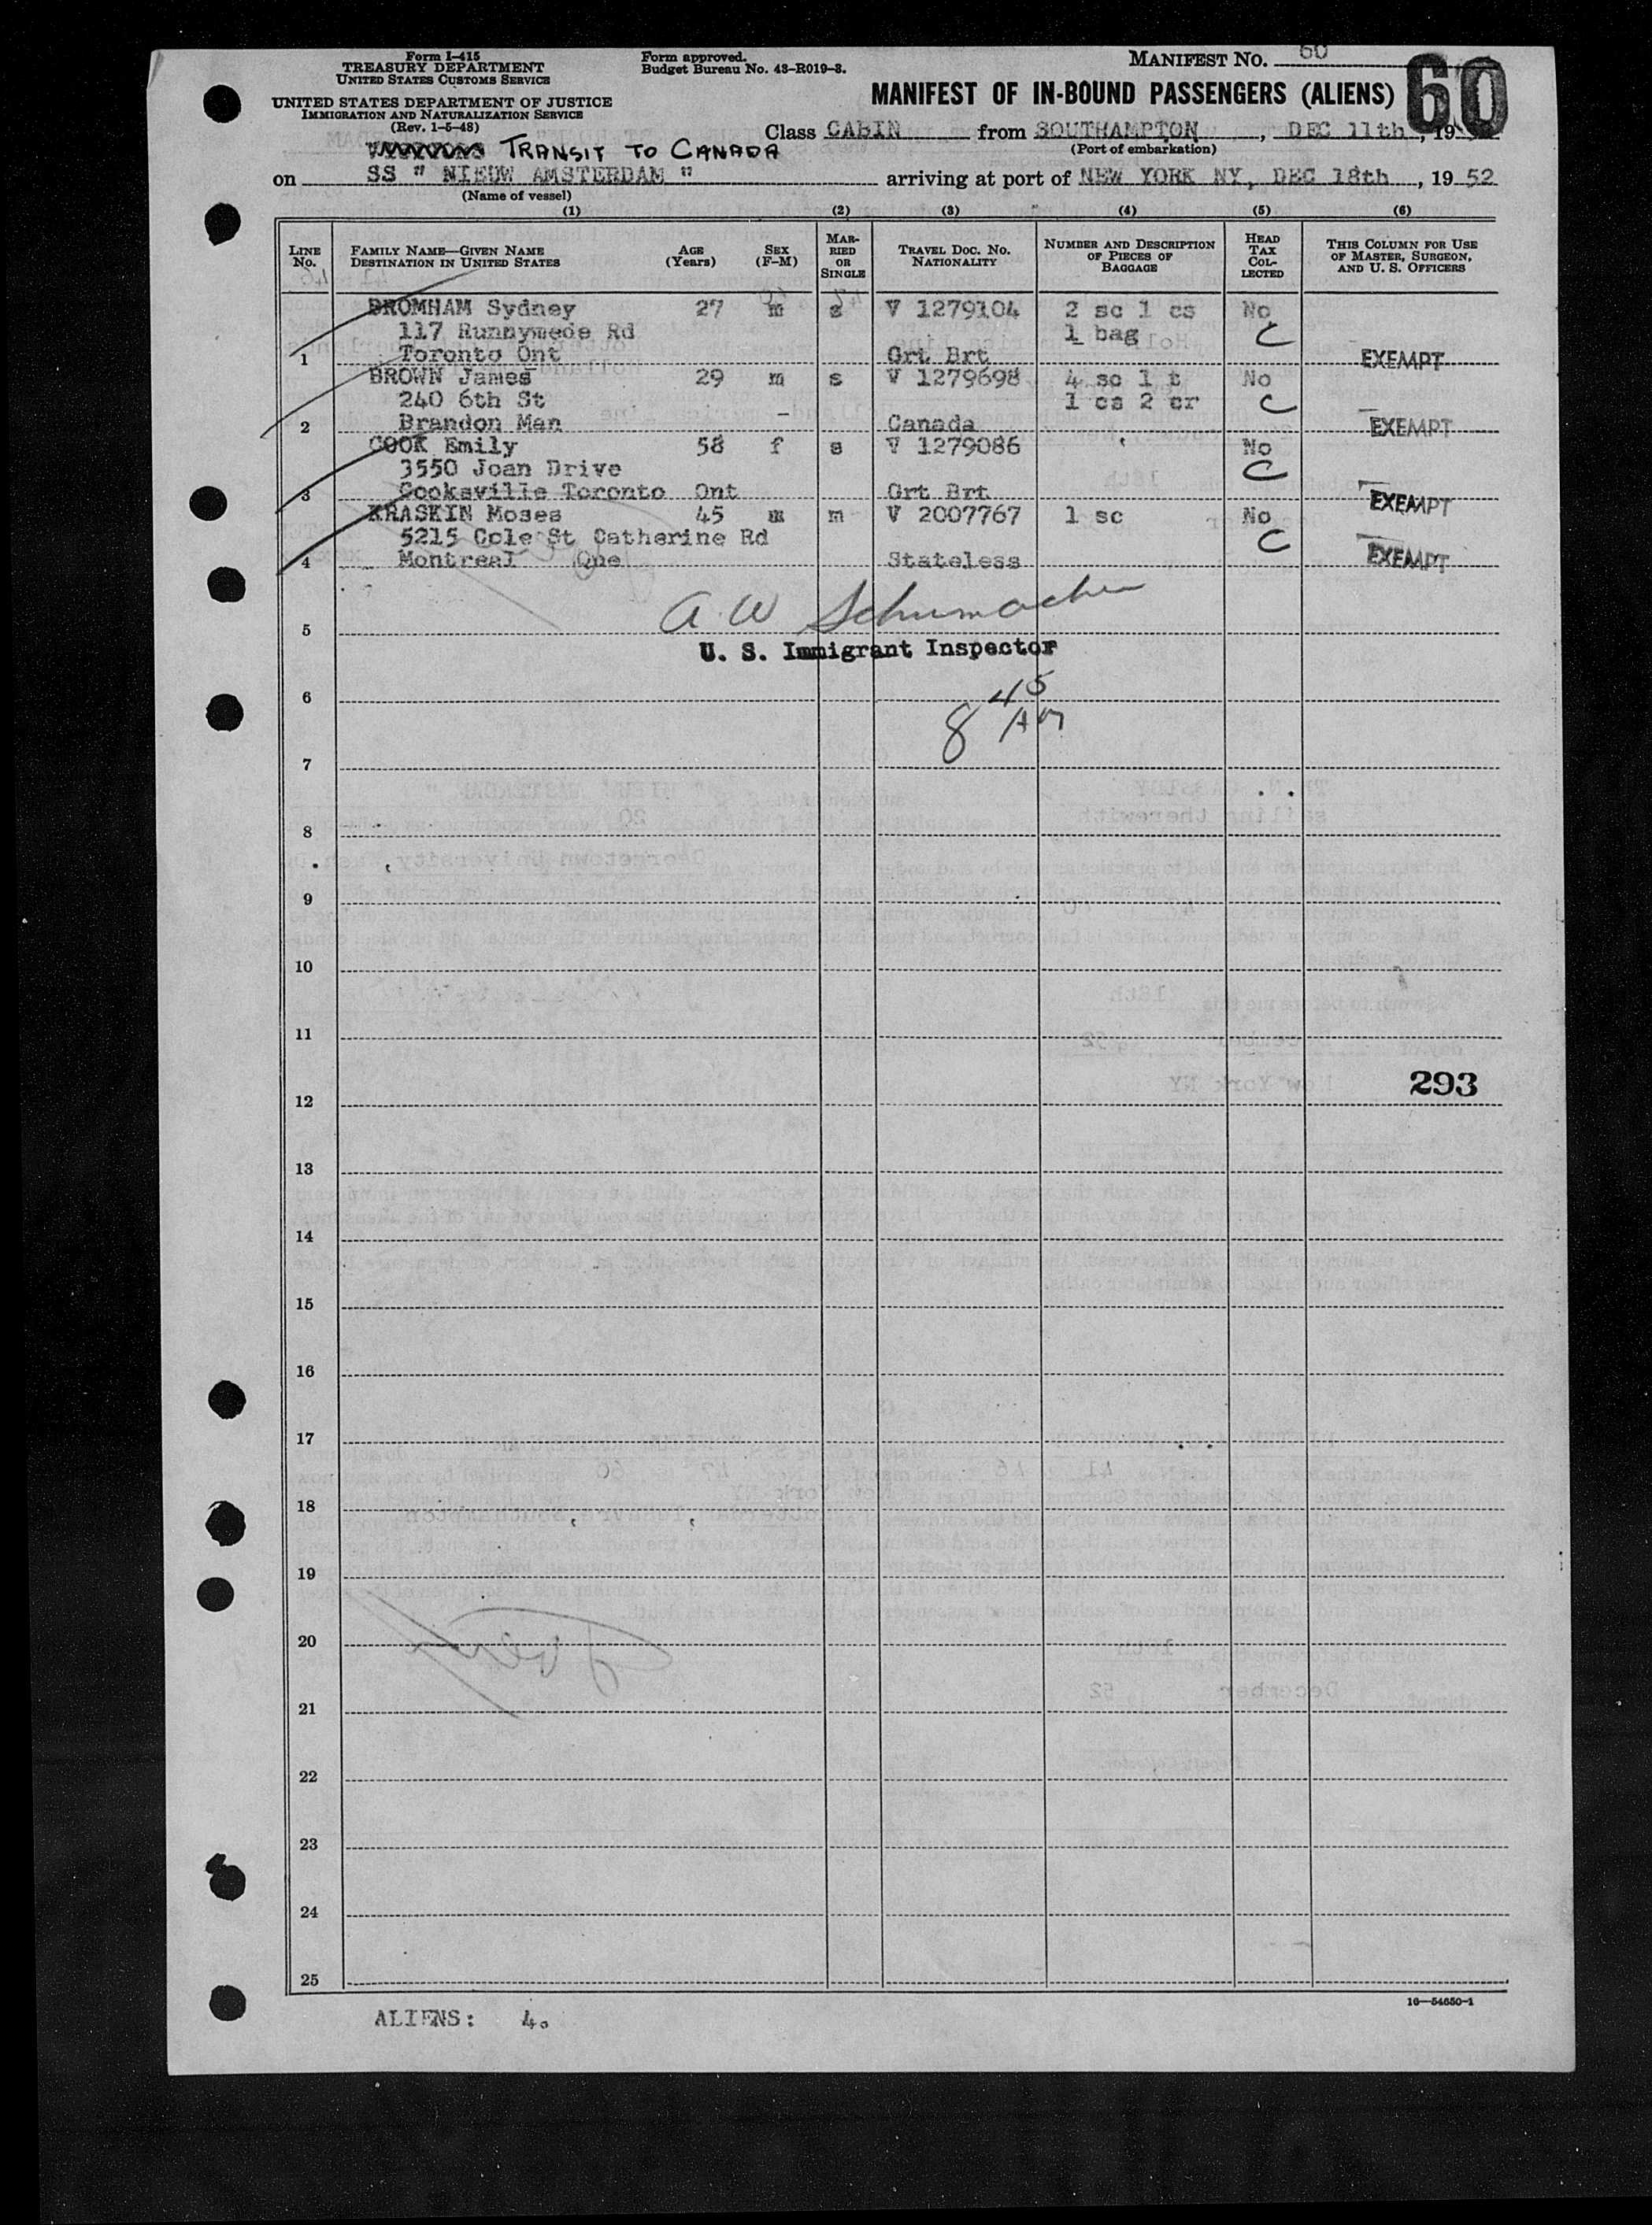 Form I-415
TREASURY DEPARTMENT
UNITED STATES CUSTOMS SERVICE
UNITED STATES DEPARTMENT OF JUSTICE
IMMIGRATION AND NATURALIZATION SERVICE
(Rev. 1-5-48)
Form approved.
Budget Bureau No. 43-R019-3.
MANIFEST NO. 60
60
MANIFEST OF IN-BOUND PASSENGERS (ALIENS)
Class CABIN from SOUTHAMPTON, DEC 11th, 19
(Port of embarkation)
TRANSIT TO CANADA
on SS " NIEUW AMSTERDAM " arriving at port of NEW YORK NY, DEC 18th, 19 52
(Name of vessel)
(1) (2) (3) (4) (5) (6)
LINE No. FAMILY NAME—GIVEN NAME DESTINATION IN UNITED STATES AGE (Years) SEX (F-M) MARRIED OR SINGLE TRAVEL DOC. NO. NATIONALITY NUMBER AND DESCRIPTION OF PIECES OF BAGGAGE HEAD TAX COLLECTED THIS COLUMN FOR USE OF MASTER, SURGEON, AND U. S. OFFICERS
BROMHAM Sydney 27 m s V 1279104 2 sc 1 cs No
117 Runnymede Rd 1 bag C
1 Toronto Ont Grt Brt EXEMPT
BROWN James 29 m s V 1279698 4 sc 1 t No
240 6th St 1 cs 2 cr C
2 Brandon Man - Canada EXEMPT
COOK Emily 58 f s V 1279086 No
3550 Joan Drive C
3 Cooksville Toronto Ont Grt Brt EXEMPT
KRASKIN Moses 45 m m V 2007767 1 sc No
5215 Cole St Catherine Rd C
4 Montreal Que Stateless EXEMPT
A W Schumacher
5
U. S. Immigrant Inspector
6
8 45 AM
7
8
9
10
11
293
12
13
14
15
16
17
18
19
20
21
22
23
24
25
16—54650-1
ALIENS: 4.